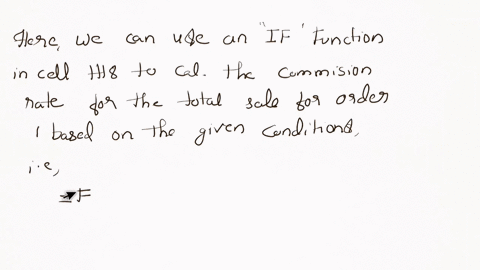 Here, we can use an "IF" function
in cell H18 to Cal. the Commision
rate for the total sale for order
1 based on the given Conditions,
i.e,
=F